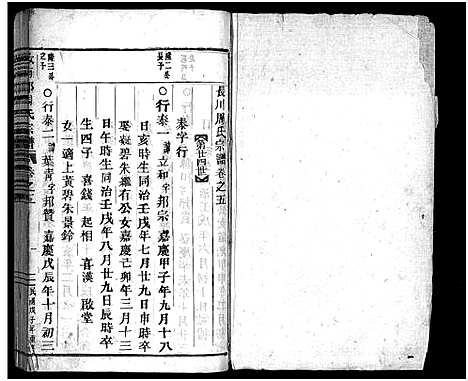 長川周氏宗譜卷之五
第廿四世
泰字行
〇行泰一 諱立和 字邦宗 嘉慶甲子年九月十八
日亥時生同治壬戌年七月廿九日申時卒
娶縱碧朱繼有公女嘉慶己卯年三月十三
日午時生同治壬戌年八月廿九日辰時卒
生四子 喜錢 起相 喜漢 啟堂
女一適上黃碧朱景鈴
〇行泰二 諱葉青 字邦贊 嘉慶戊辰年十月初三
長子
之子
氏宗譜
卷之五
民國戊子年